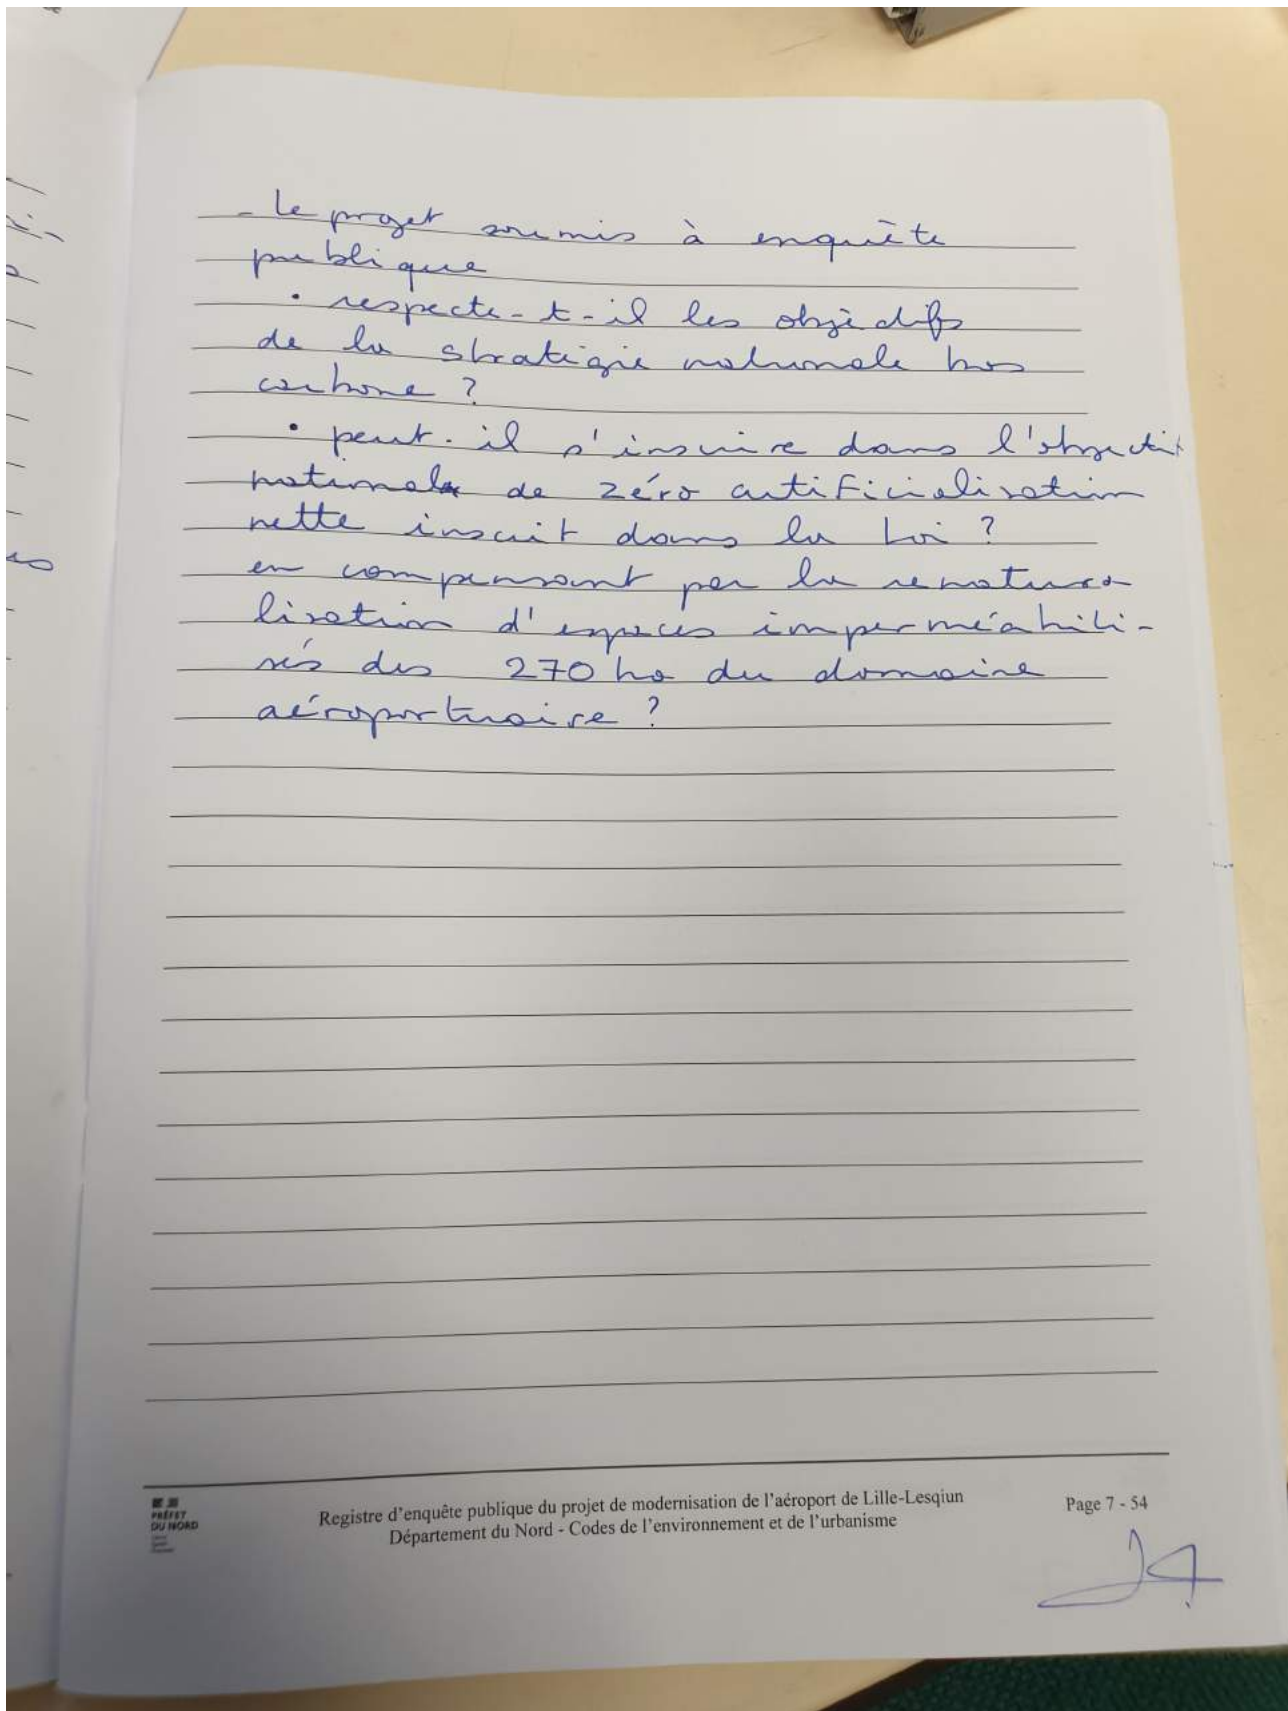 - Le projet soumis à enquête
publique
• respecte-t-il les objectifs
de la stratégie nationale bas
carbone ?
• peut-il s'inscrire dans l'objectif
national de zéro artificialisation
nette inscrit dans la Loi ?
en compensant par la renatura-
lisation d'espaces imperméabili-
sés des 270 ha du domaine
aéroportuaire ?
PRÉFET
DU NORD
Registre d'enquête publique du projet de modernisation de l'aéroport de Lille-Lesqiun
Département du Nord - Codes de l'environnement et de l'urbanisme
Page 7 - 54